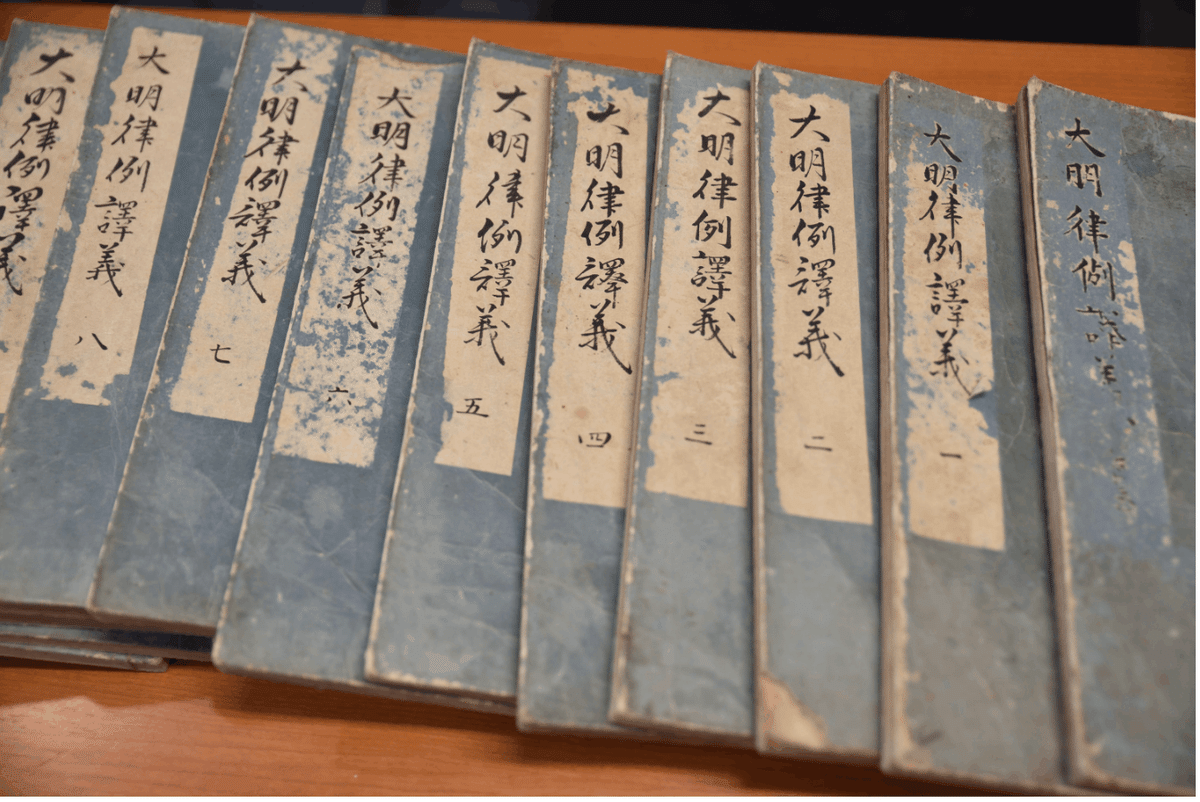 大明律例
大明律例譯義 一
大明律例譯義 二
大明律例譯義 三
大明律例譯義 四
大明律例譯義 五
大明律例譯義 六
大明律例譯義 七
大明律例譯義 八
大明律例譯義